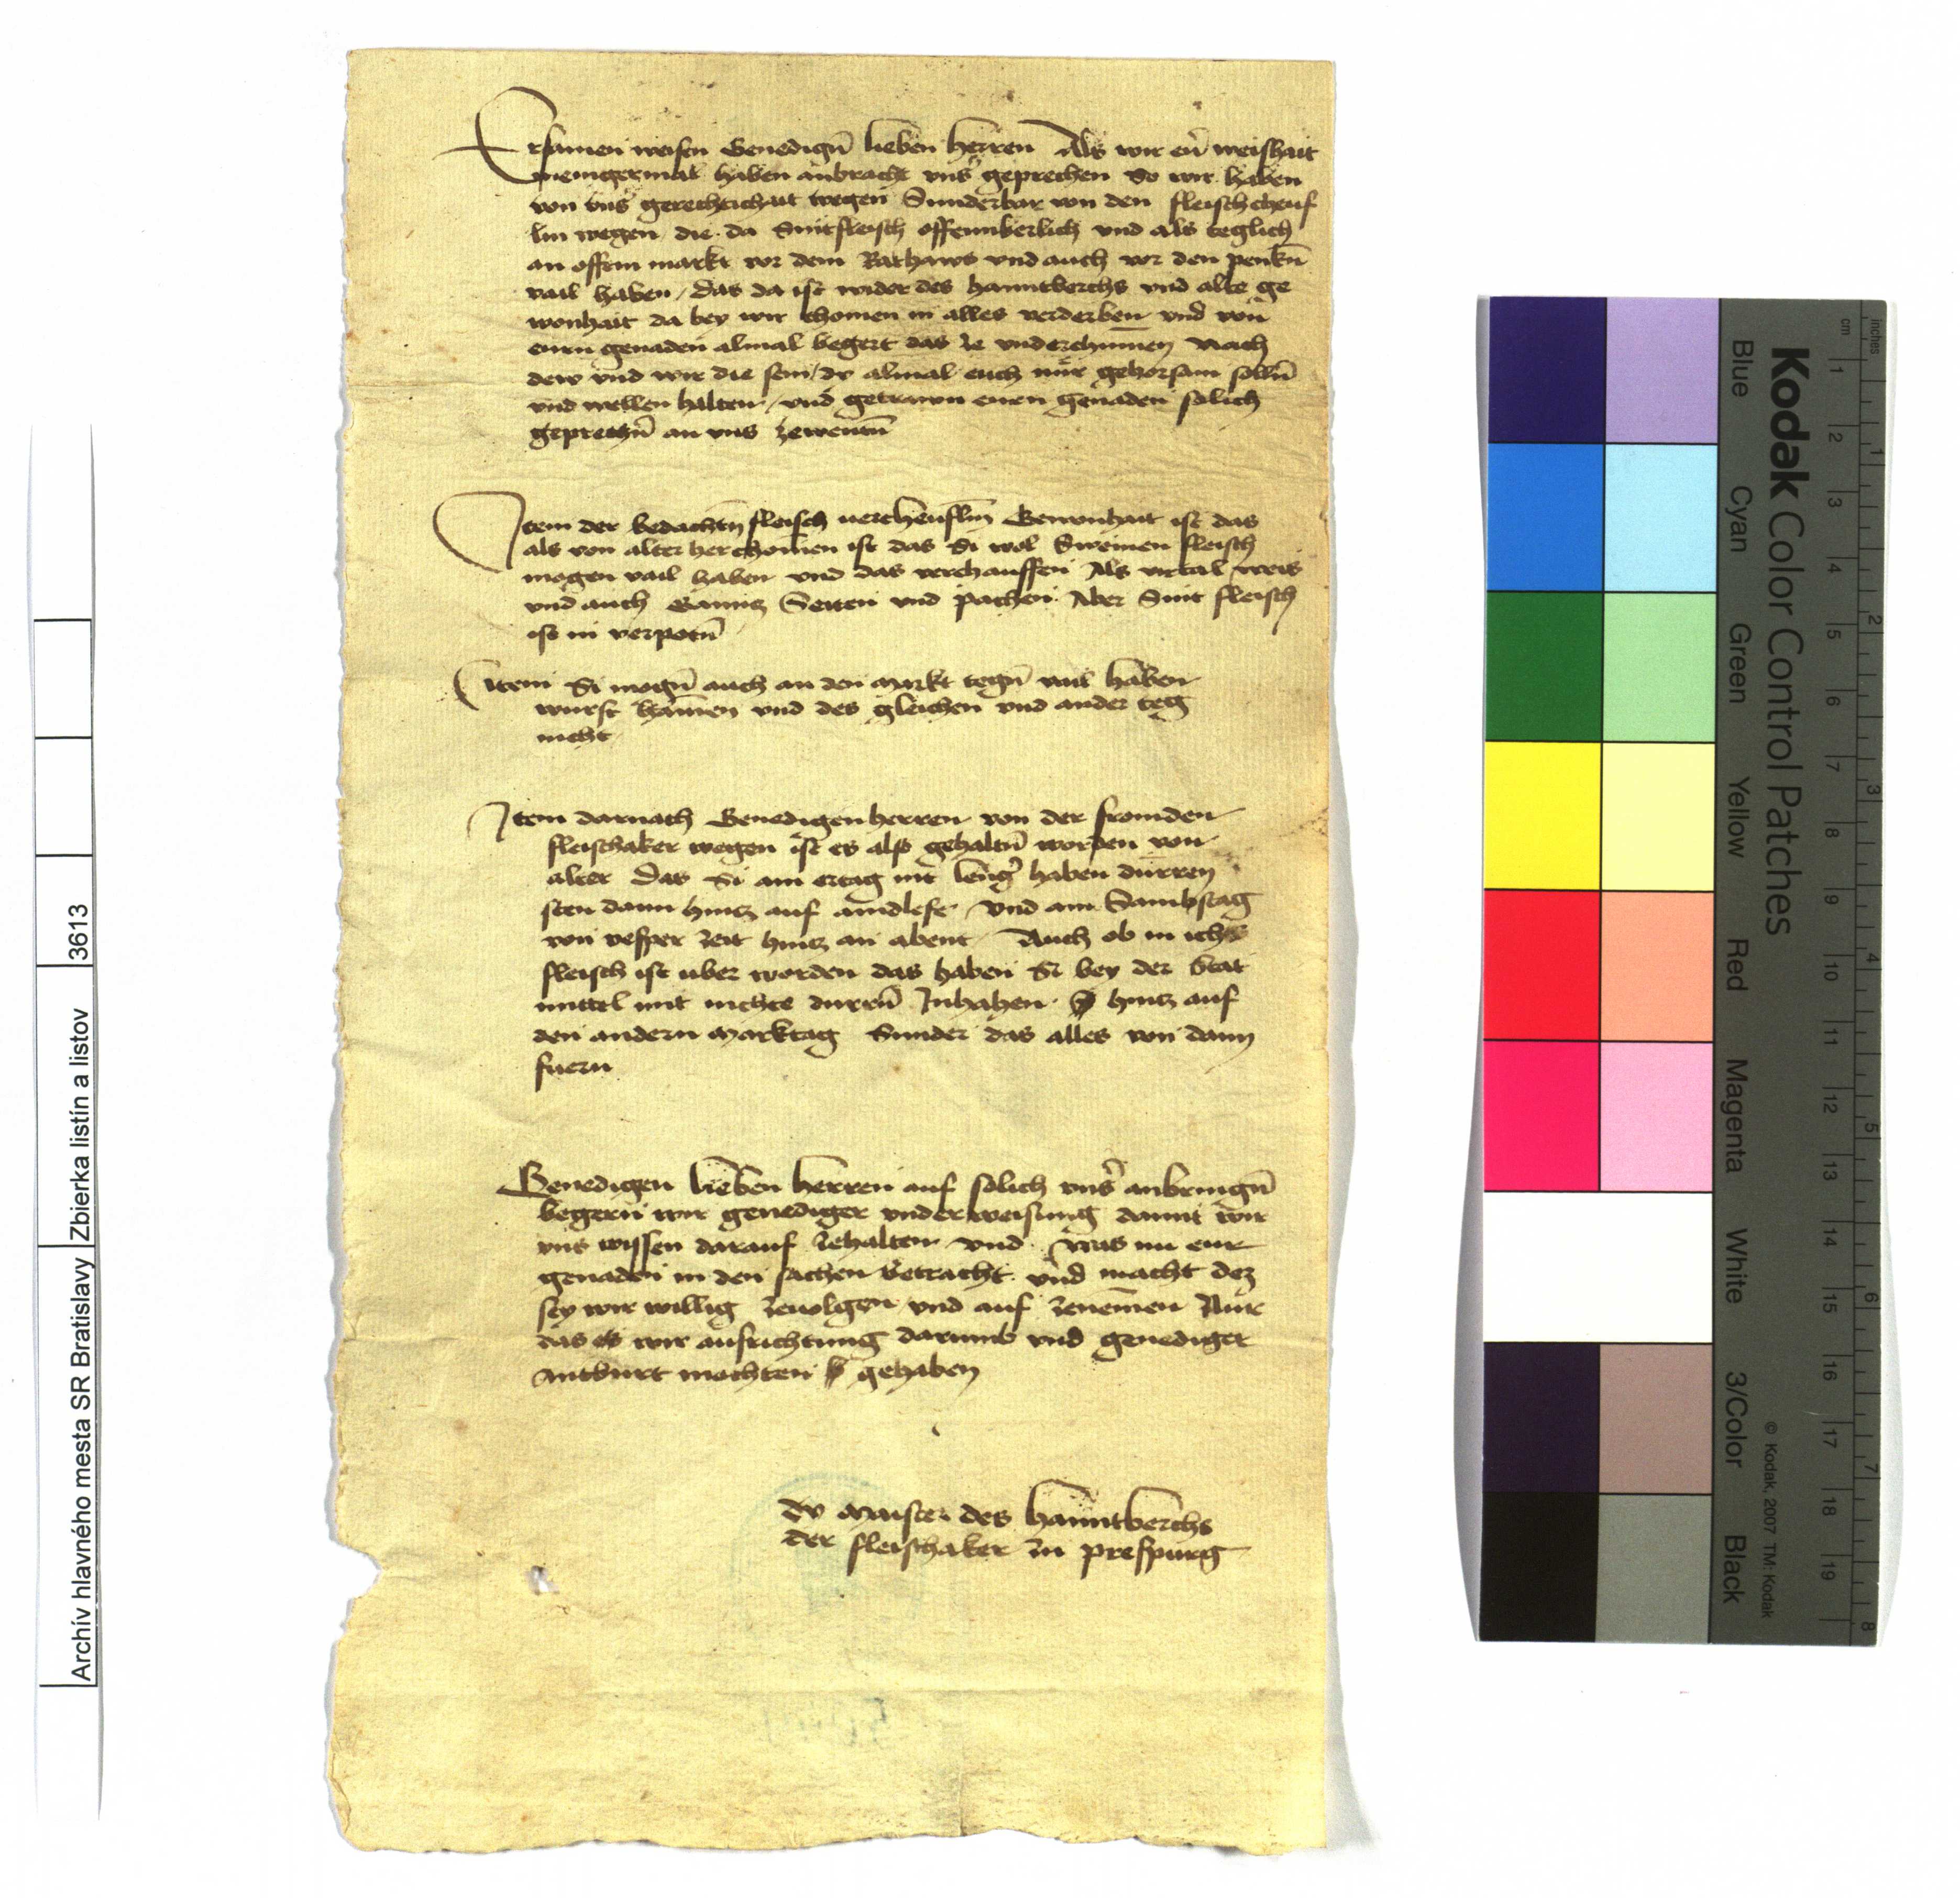 Ersamen weisen Genedign̄ lieben herren Als wir eur̄ weishait
menigermal haben anbracht vns̄ geprechen So wir haben
von vns̄ gerechtichait wegen Sunderbar von den fleischcheuf
lin wegen die da Snitfleisch offennberlich vnd als teglich
an offem markt vor dem Rathaws vnd auch vor den penkn̄
vail haben / das da ist wider des hanntberchs vnd alte ge
wonhait da bey wir chomen in alles verderben vnd von
eurn genaden almal begert das ze vnderchumen Nach
dem vnd wir die sein / dy almal euch nur gehorsam solln̄
vnd wellen halten / vnd getrawn eurn genaden solich
geprechn̄ an vns zewentn̄
Item der bedachtn̄ fleisch verchewflin Gewonhait ist das
als von alter herchomen ist das Si wol Sweinen fleisch
mogen vail haben vnd das verchauffen Als virtal weis
vnd auch Ganncz Seiten vnd pachen Aber Snit fleisch
ist in verpotn̄
Item Si mogn̄ auch an den markt tegn̄ vail haben
wurst hamen vnd des gleichen vnd ander teg
nicht
Item darnach Genedigen herren von der fromden
fleischaker wegen ist es also gehaltn̄ worden von
alter Das Si am ertag nit lenḡ haben durren
sten dann hincz auf aindlefe vnd am Sambstag
von vesper zeit hincz an abent Auch ob in ichts
fleisch ist uber worden das haben Si bey der Stat
mittel mit nichte durrn̄ Inhaben hincz auf
den andern Marktag Sunder das alles von dann
fuern
Genedigen lieben herren auf solich vns̄ anbringn̄
begern wir genediger vnderweisung damit wir
vns wissen darauf zehalten vnd was nu eur
genaden in den sachen betracht vnd macht dez
sey wir willig zeuolgen vnd auf zenemen Nur
das wir ausrichtung darumb vnd genediger
antburt mochten gehaben
dy Maister des hanntberchs
der fleischaker zu prespurg
Archív hlavného mesta SR Bratislavy
Zbierka listín a listov
3613
Kodak Color Control Patches
Blue
Cyan
Green
Yellow
Red
Magenta
White
3/Color
Black
© Kodak, 2007 TM: Kodak
inches
1
2
3
4
5
6
7
8
cm
1
2
3
4
5
6
7
8
9
10
11
12
13
14
15
16
17
18
19